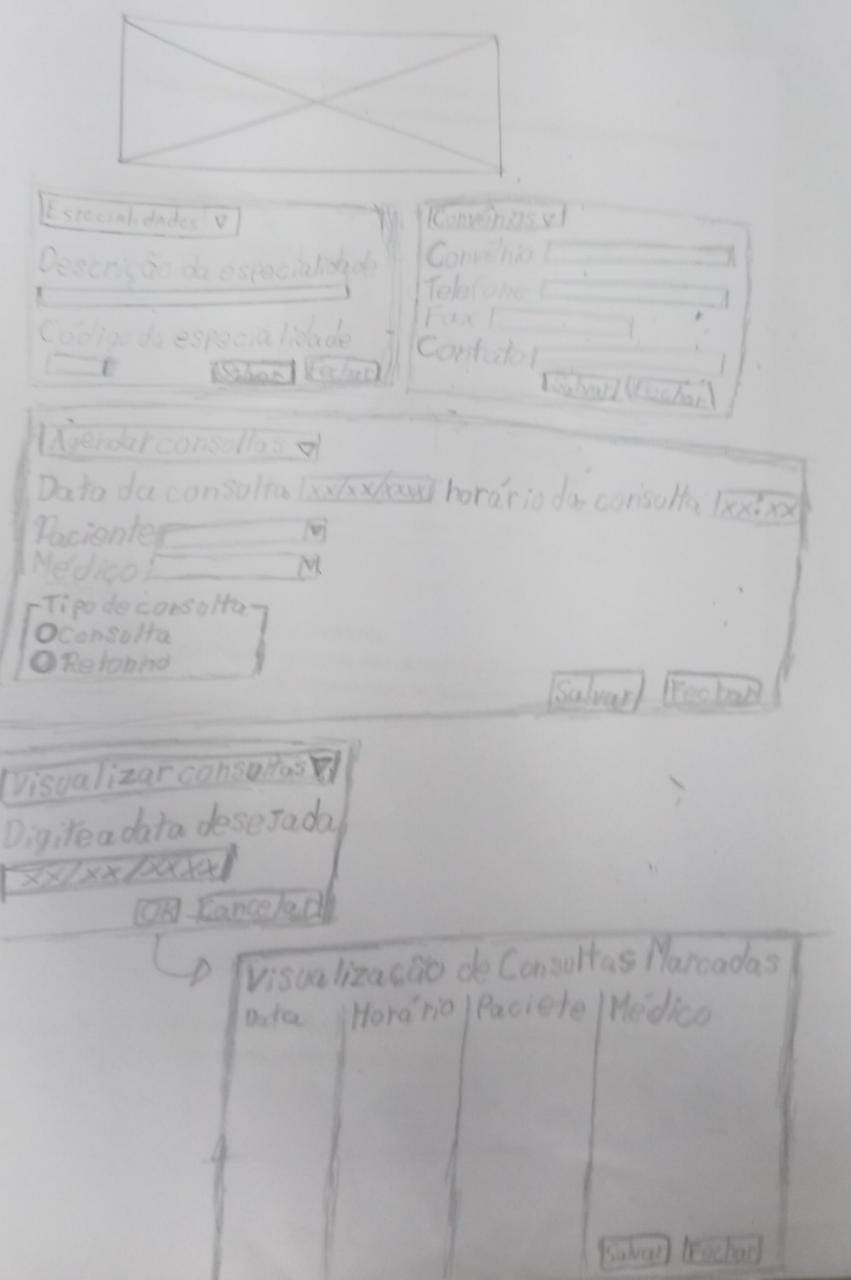 Especialidades
Descrição da especialidade
Código da especialidade
Salvar Fechar
Convênios
Convênio
Telefone
Fax
Contato
Salvar Fechar
Agendar consultas
Data da consulta xx/xx/xxxx horário da consulta xx:xx
Paciente
Médico
Tipo de consulta
Consulta
Retonho
Salvar Fechar
Visualizar consultas
Digite a data desejada
xx/xx/xxxx
OK Cancelar
Visualização de Consultas Marcadas
Data Horário Paciete Médico
Salvar Fechar